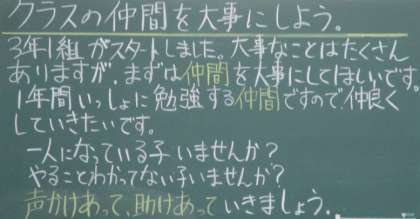 クラスの仲間を大事にしよう。
3年1組がスタートしました。大事なことはたくさん
ありますが、まずは仲間を大事にしてほしいです。
1年間いっしょに勉強する仲間ですので仲良く
していきたいです。
一人になっている子いませんか?
やることわかってない子いませんか?
声かけあって、助けあっていきましょう。